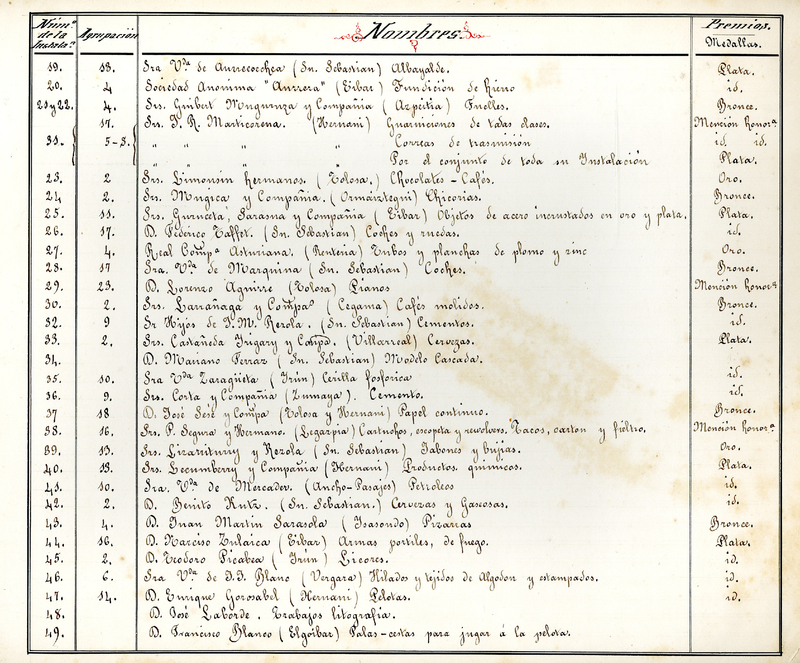 Núm.º de la Instala.ⁿ Agrupación Nombres. Premios. Medallas.
19. 18. Sra V.da de Aurrecoechea (Sn. Sebastian) Albayalde. Plata.
20. 4 Sociedad Anonima "Aurrera" (Eibar) Fundición de hierro id.
21 y 22. 4. Srs. Guibert Muguruza y Compañia (Azpeitia) Fuelles. Bronce.
17. Srs. J. R. Marticorena. (Hernani) Guarniciones de todas clases. Mención honor.a
31. 5-3. " " " " Correas de trasmisión id. id.
Por el conjunto de toda su Instalación Plata.
23. 2 Srs. Limousin hermanos. (Tolosa.) Chocolates-Cafés. Oro.
24 2. Srs. Mugica y Compañia. (Ormaiztegui) Chicorias. Bronce.
25. 11. Srs. Guruceta, Sarasua y Compañia (Eibar) Objetos de acero incrustados en oro y plata. Plata.
26. 17. D. Federico Taffet. (Sn. Sebastian) Coches y ruedas. id.
27. 4. Real Comp.a Asturiana. (Renteria) Tubos y planchas de plomo y zinc Oro.
28. 17 Sra. V.da de Marquina (Sn. Sebastian) Coches. Bronce.
29. 23. D. Lorenzo Aguirre (Tolosa) Pianos Mención honor.a
30. 2. Srs. Larrañaga y Comp.a (Cegama) Cafés molidos. Bronce.
32. 9 Sr Hijos de J. M. Rezola. (Sn. Sebastian) Cementos. id.
33. 2. Srs. Castañeda Yrigary y Comp.a. (Villarreal) Cervezas. Plata.
34. D. Mariano Ferraz (Sn. Sebastian) Modelo Cascada.
35. 10. Sra V.da Zaragüeta (Irún) Cerilla fosforica id.
36. 9. Srs. Corta y Compañia (Zumaya). Cemento. id.
37 18 D. José Sesé y Comp.a (Tolosa y Hernani) Papel continuo. Bronce.
38. 16. Srs. P. Segura y Hermano. (Legazpia) Cartuchos, escopeta y rewolvers. Tacos, carton y fieltro. Mención honor.a
39. 13. Srs. Lizariturry y Rezola (Sn. Sebastian) Jabones y bujias. Oro.
40. 18. Srs. Lecumberry y Compañia (Hernani) Productos quimicos. Plata.
41. 10 Sra. V.da de Mercader. (Ancho-Pasajes) Petroleos id.
42. 2. D. Benito Kutz. (Sn. Sebastian.) Cervezas y Gaseosas. id.
43. 4. D. Juan Martin Sarasola (Isasondo) Pizarras Bronce.
44. 16. D. Narciso Zulaica (Eibar) Armas portiles, de fuego. Plata.
45. 2. D. Teodoro Picabea (Irún) Licores. id.
46. 6. Sra V.da de J.J. Blanc (Vergara) Hilados y tejidos de Algodon y estampados. id.
47. 14. D. Enrique Gorosabel (Hernani) Pelotas. id.
48. D. José Laborde. Trabajos litografía.
49. D. Francisco Blanco (Elgóibar) Palas-cestas para jugar á la pelota.